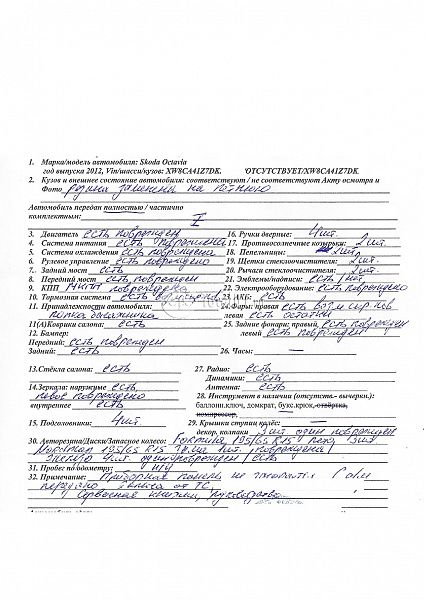 1. Марка/модель автомобиля: Skoda Octavia
год выпуска 2012, Vin/шасси/кузов: XW8CA41Z7DK. ОТСУТСТВУЕТ/XW8CA41Z7DK.
2. Кузов и внешнее состояние автомобиля: соответствуют / не соответствуют Акту осмотра и
Фото
Автомобиль передан полностью / частично
комплектным:
3. Двигатель есть поврежден 16. Ручки дверные: 4 шт.
4. Система питания есть повреждена 17. Противосолнечные козырьки: 2 шт.
5. Система охлаждения есть повреждена 18. Пепельницы: 2 шт.
6. Рулевое управление есть повреждено 19. Щетки стеклоочистителя: 2 шт.
7. Задний мост есть 20. Рычаги стеклоочистителя: 2 шт.
8. Передний мост есть поврежден 21. Эмблемы/надписи: есть / нет
9. КПП МКПП повреждена 22. Электрооборудование: есть повреждено
10. Тормозная система есть 23. АКБ: есть
11. Принадлежности автомобиля: 24. Фары: правая есть
полка багажника левая есть остатки
11(А) Коврики салона: есть 25. Задние фонари: правый есть поврежден
12. Бампер: левый есть поврежден
Передний: есть поврежден
Задний: есть 26. Часы: —
13. Стёкла салона: есть 27. Радио: есть
Динамики: есть
14. Зеркала: наружные есть Антенна: есть
левое повреждено 28. Инструмент в наличии (отсутств.- вычерки.):
внутреннее есть баллонн.ключ, домкрат, букс.крюк, отвёртка,
компрессор,
15. Подголовники: 4 шт 29. Крышка ступиц колес: —
декор, колпаки 3 шт. один поврежден
30. Авторезина/Диски/Запасное колесо: 195/65 R15
Nordman 195/65 R15 повреждена
4 шт. один поврежден / есть
31. Пробег по одометру: н/у
32. Примечание: Приборная панель не
передано от ТС,
Сервисная книжка, руководство